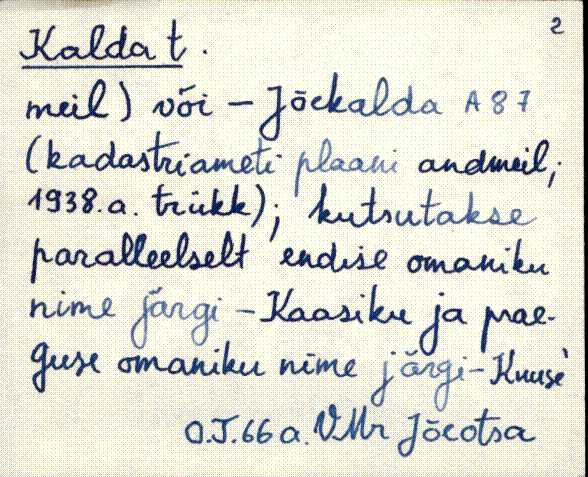 2
Kalda t.
meil) või – Jõekalda A 87
(kadastriameti plaani andmeil;
1938.a. trükk); kutsutakse
paralleelselt endise omaniku
nime järgi – Kaasiku ja prae-
guse omaniku nime järgi – Kuuse
O.T. 66 a. VMr Jõeotsa